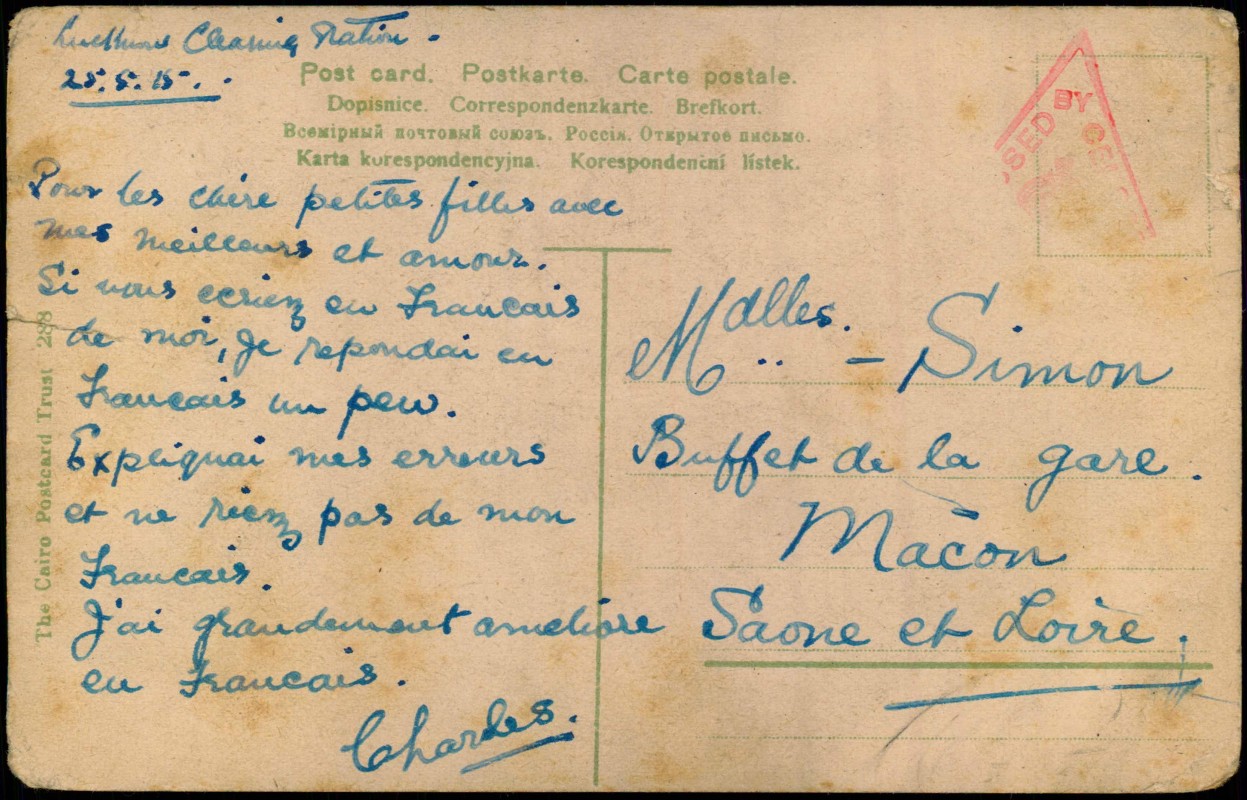 Clearing Station.
25.5.15.
Post card. Postkarte. Carte postale.
Dopisnice. Correspondenzkarte. Brefkort.
Всемірный почтовый союзъ. Россія. Открытое письмо.
Karta korespondencyjna. Korespondenční lístek.
PASSED BY CENSOR
Pour les chère petites filles avec
mes meilleurs et amour.
Si vous ecriez en Francais
de moi, Je repondai en
Francais un peu.
Expliquai mes erreurs
et ne riez pas de mon
Francais.
J'ai grandement ameliore
en Francais.
Charles.
Mdlles. – Simon
Buffet de la gare.
Mâcon
Saone et Loire.
The Cairo Postcard Trust 288